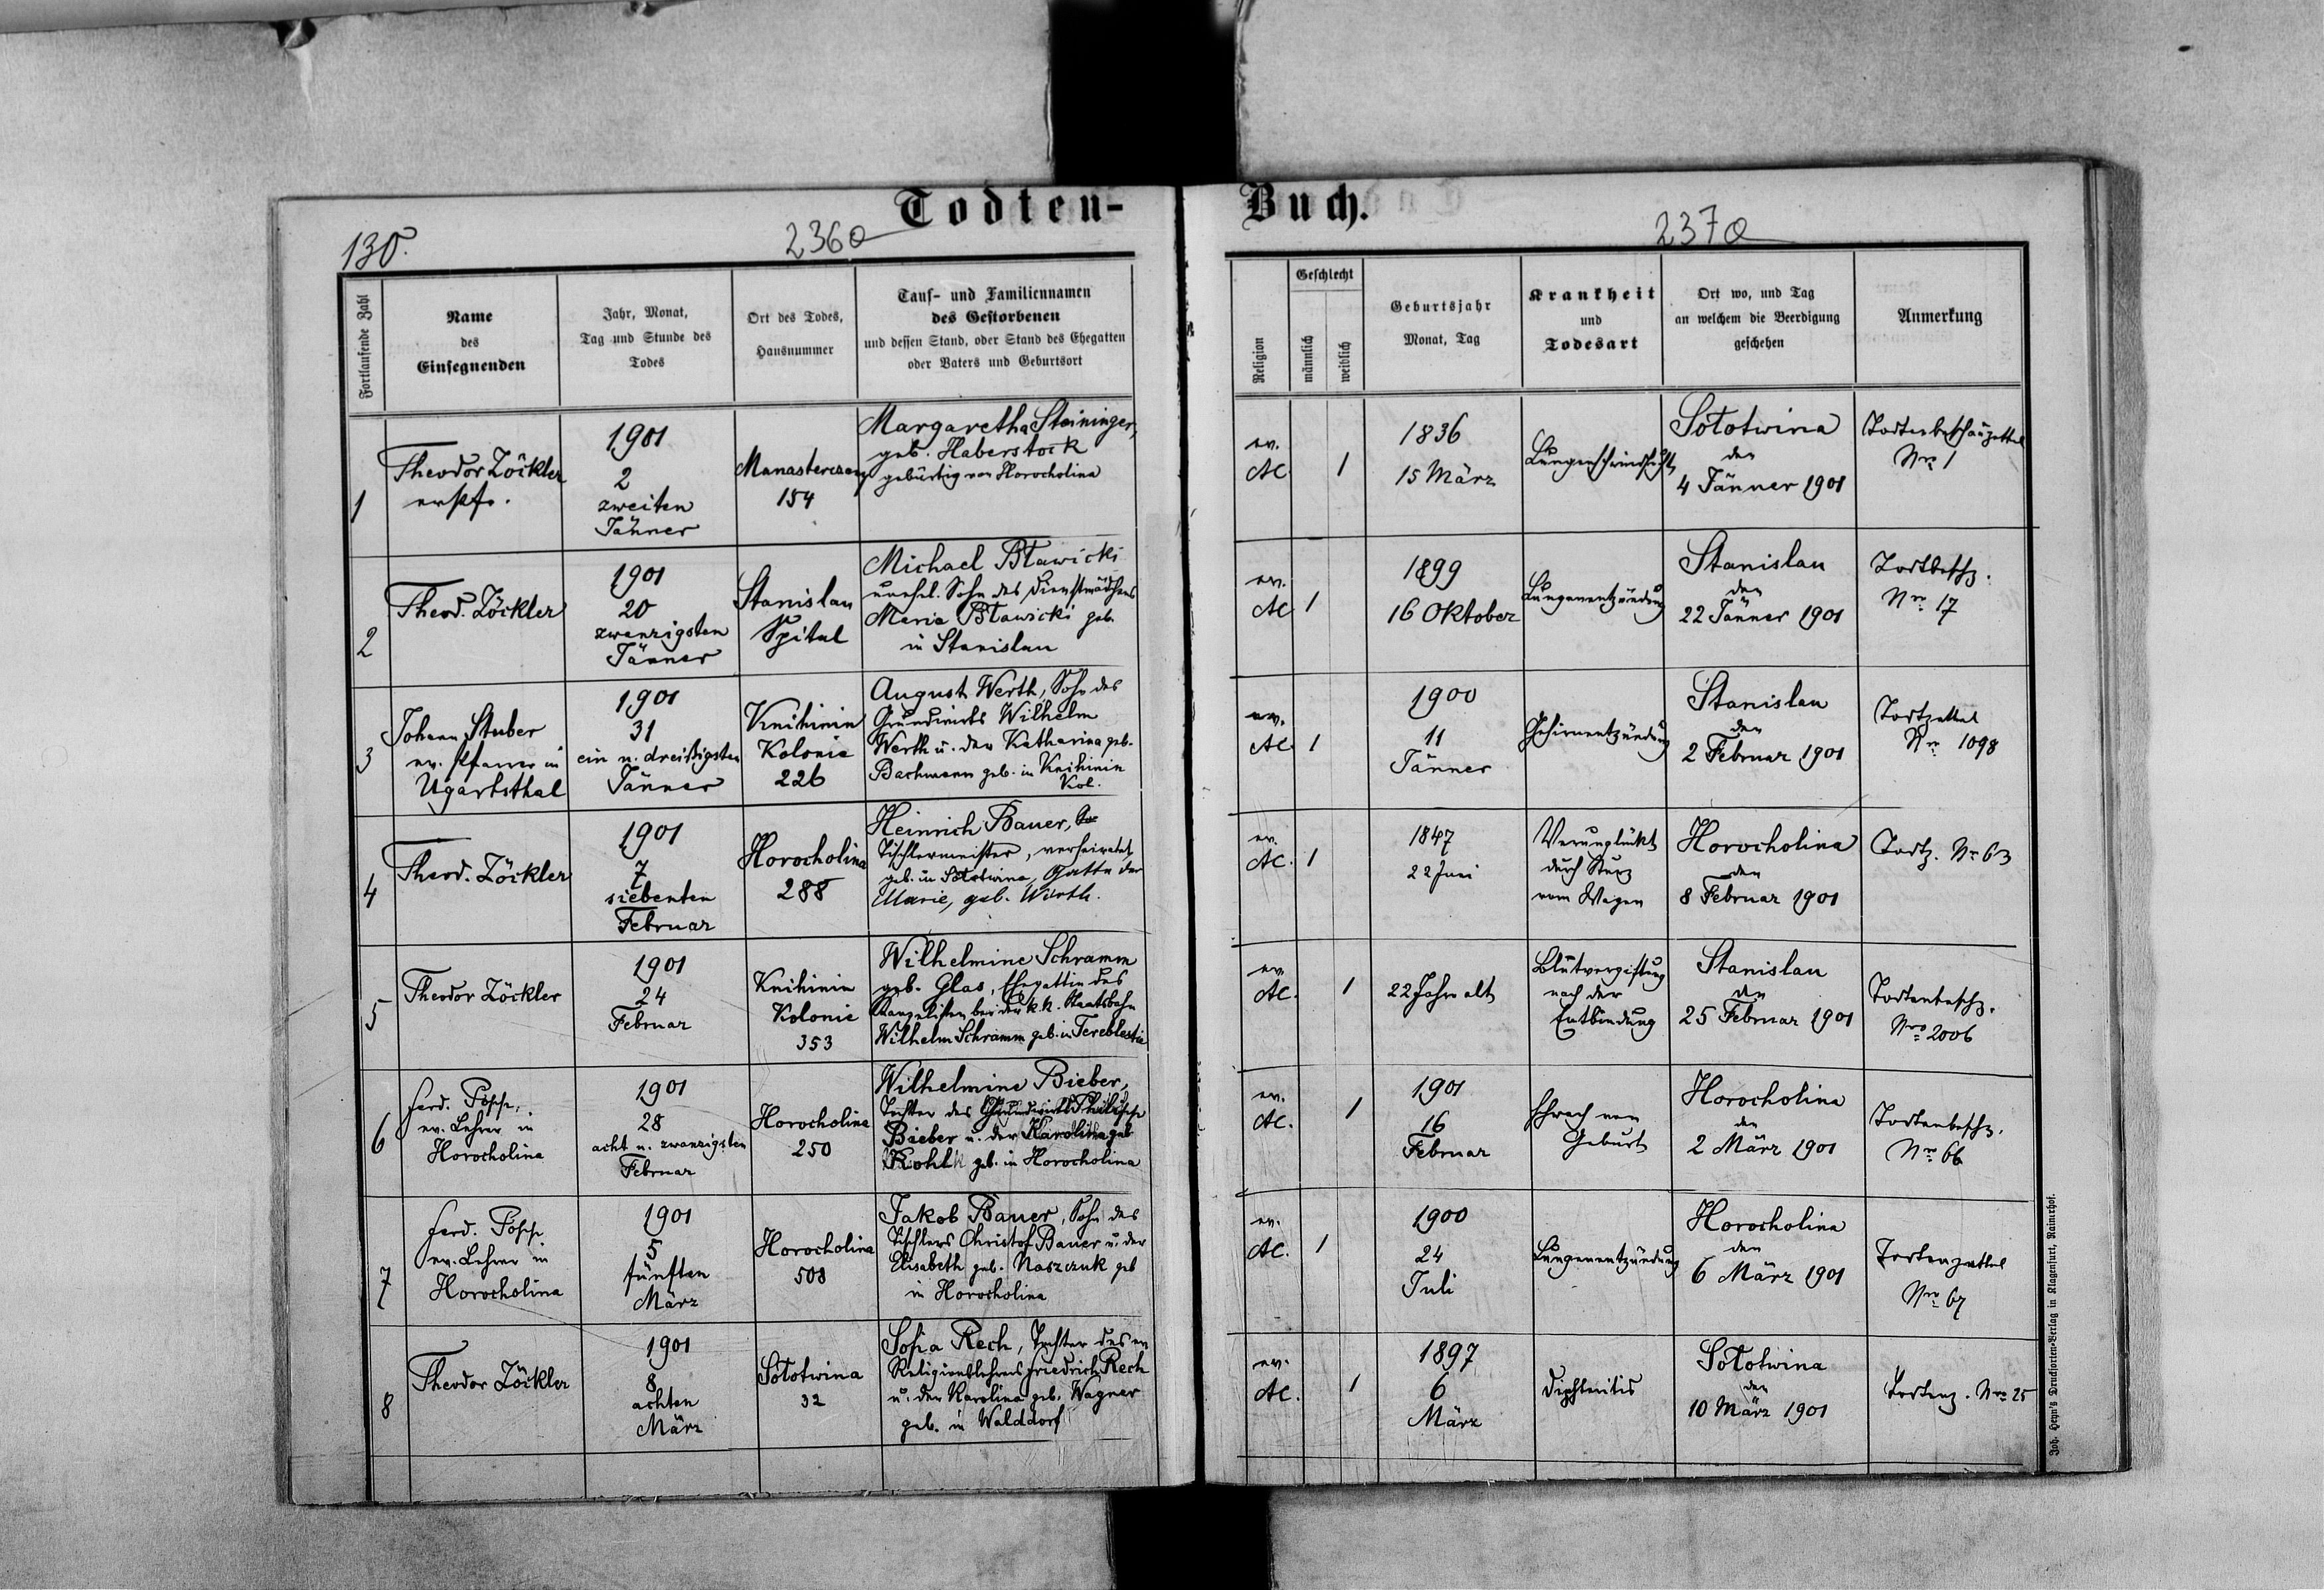 Todten-
Buch.
130.
236a
237a
Fortlaufende Zahl
Name
des
Einsegnenden
Jahr, Monat,
Tag und Stunde des
Todes
Ort des Todes,
Hausnummer
Tauf- und Familiennamen
des Gestorbenen
und dessen Stand, oder Stand des Ehegatten
oder Vaters und Geburtsort
Religion
Geschlecht
männlich
weiblich
Geburtsjahr
Monat, Tag
Krankheit
und
Todesart
Ort wo, und Tag
an welchem die Beerdigung
geschehen
Anmerkung
1
Theodor Zöckler
1901
2
zweiten
Jänner
Manasterczany
154
Margaretha Steininger,
geb. Haberstock
gebürtig von Horocholina
ev.
AC
1
1836
15 März
Lungenschwindsucht
Sototwina
den
4 Jänner 1901
Todtenbeschauzettel
Nro 1
2
Theod. Zöckler
1901
20
zwanzigsten
Jänner
Stanislau
Spital
Michael Btawicki
unehel. Sohn des Dienstmädchens
Maria Btawicki geb.
in Stanislau
ev.
AC
1
1899
16 Oktober
Lungenentzündung
Stanislau
den
22 Jänner 1901
Todtbesch.
Nro 17
3
Johann Stuber
ev. Pfarrer in
Ugartsthal
1901
31
ein u. dreißigsten
Jänner
Knihinin
Kolonie
226
August Werth, Sohn des
Grundwirts Wilhelm
Werth u. der Katharina geb.
Bachmann geb. in Knihinin
Kol.
ev.
AC
1
1900
11
Jänner
Gehirnentzündung
Stanislau
den
2 Februar 1901
Todtzettel
Nr 1098
4
Theod. Zöckler
1901
7
siebenten
Februar
Horocholina
288
Heinrich Bauer,
Tischlermeister, verheiratet
geb. in Sototwina, Gatte der
Marie, geb. Würth.
ev.
AC.
1
1847
22 Juni
Verunglückt
durch Sturz
vom Wagen
Horocholina
den
8 Februar 1901
Todtz. Nr 63
5
Theodor Zöckler
1901
24
Februar
Knihinin
Kolonie
353
Wilhelmine Schramm
geb. Glas, Ehegattin des
Kanzelisten bei der k. k. Staatsbahn
Wilhelm Schramm geb. in Tereblestie
ev.
AC.
1
22 Jahre alt
Blutvergiftung
nach der
Entbindung
Stanislau
den
25 Februar 1901
Todtenbesch.
Nro 2006
6
Ferd. Popp,
ev. Lehrer in
Horocholina
1901
28
acht u. zwanzigsten
Februar
Horocholina
250
Wilhelmine Bieber,
Tochter des Grundwirts Philipp
Bieber u. der Karolina geb
Kohl geb. in Horocholina
ev.
AC.
1
1901
16
Februar
Schwach von
Geburt
Horocholina
den
2 März 1901
Todtenbesch.
Nro 66
7
Ferd. Popp
ev. Lehrer in
Horocholina
1901
5
fünften
März
Horocholina
508
Jakob Bauer, Sohn des
Tischlers Christof Bauer u. der
Elisabeth geb. Naszczuk geb
in Horocholina
ev.
AC.
1
1900
24
Juli
Lungenentzündung
Horocholina
den
6 März 1901
Todtenzettel
Nro 67
8
Theodor Zöckler
1901
8
achten
März
Sototwina
32
Sofia Rech, Tochter des ev
Religionslehrers Friedrich Rech
u. der Karolina geb. Wagner
geb. in Walddorf
ev.
AC.
1
1897
6
März
Diphteritis
Sototwina
den
10 März 1901
Todtenz. Nro 25
Joh. Heyn's Drucksorten-Verlag in Klagenfurt, Rainerhof.